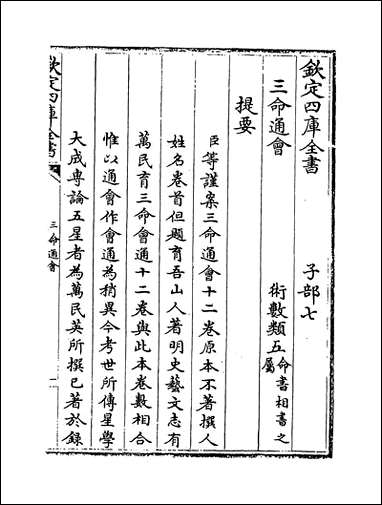 欽定四庫全書　子部七
三命通會　術數類五命書相書之屬
提要
臣等謹案三命通會十二卷原本不著撰人
姓名卷首但題育吾山人著明史藝文志有
萬民育三命會通十二卷與此本卷數相合
惟以通會作會通為稍異今考世所傳星學
大成專論五星者為萬民英所撰已著於錄
欽定四庫全書
三命通會
一